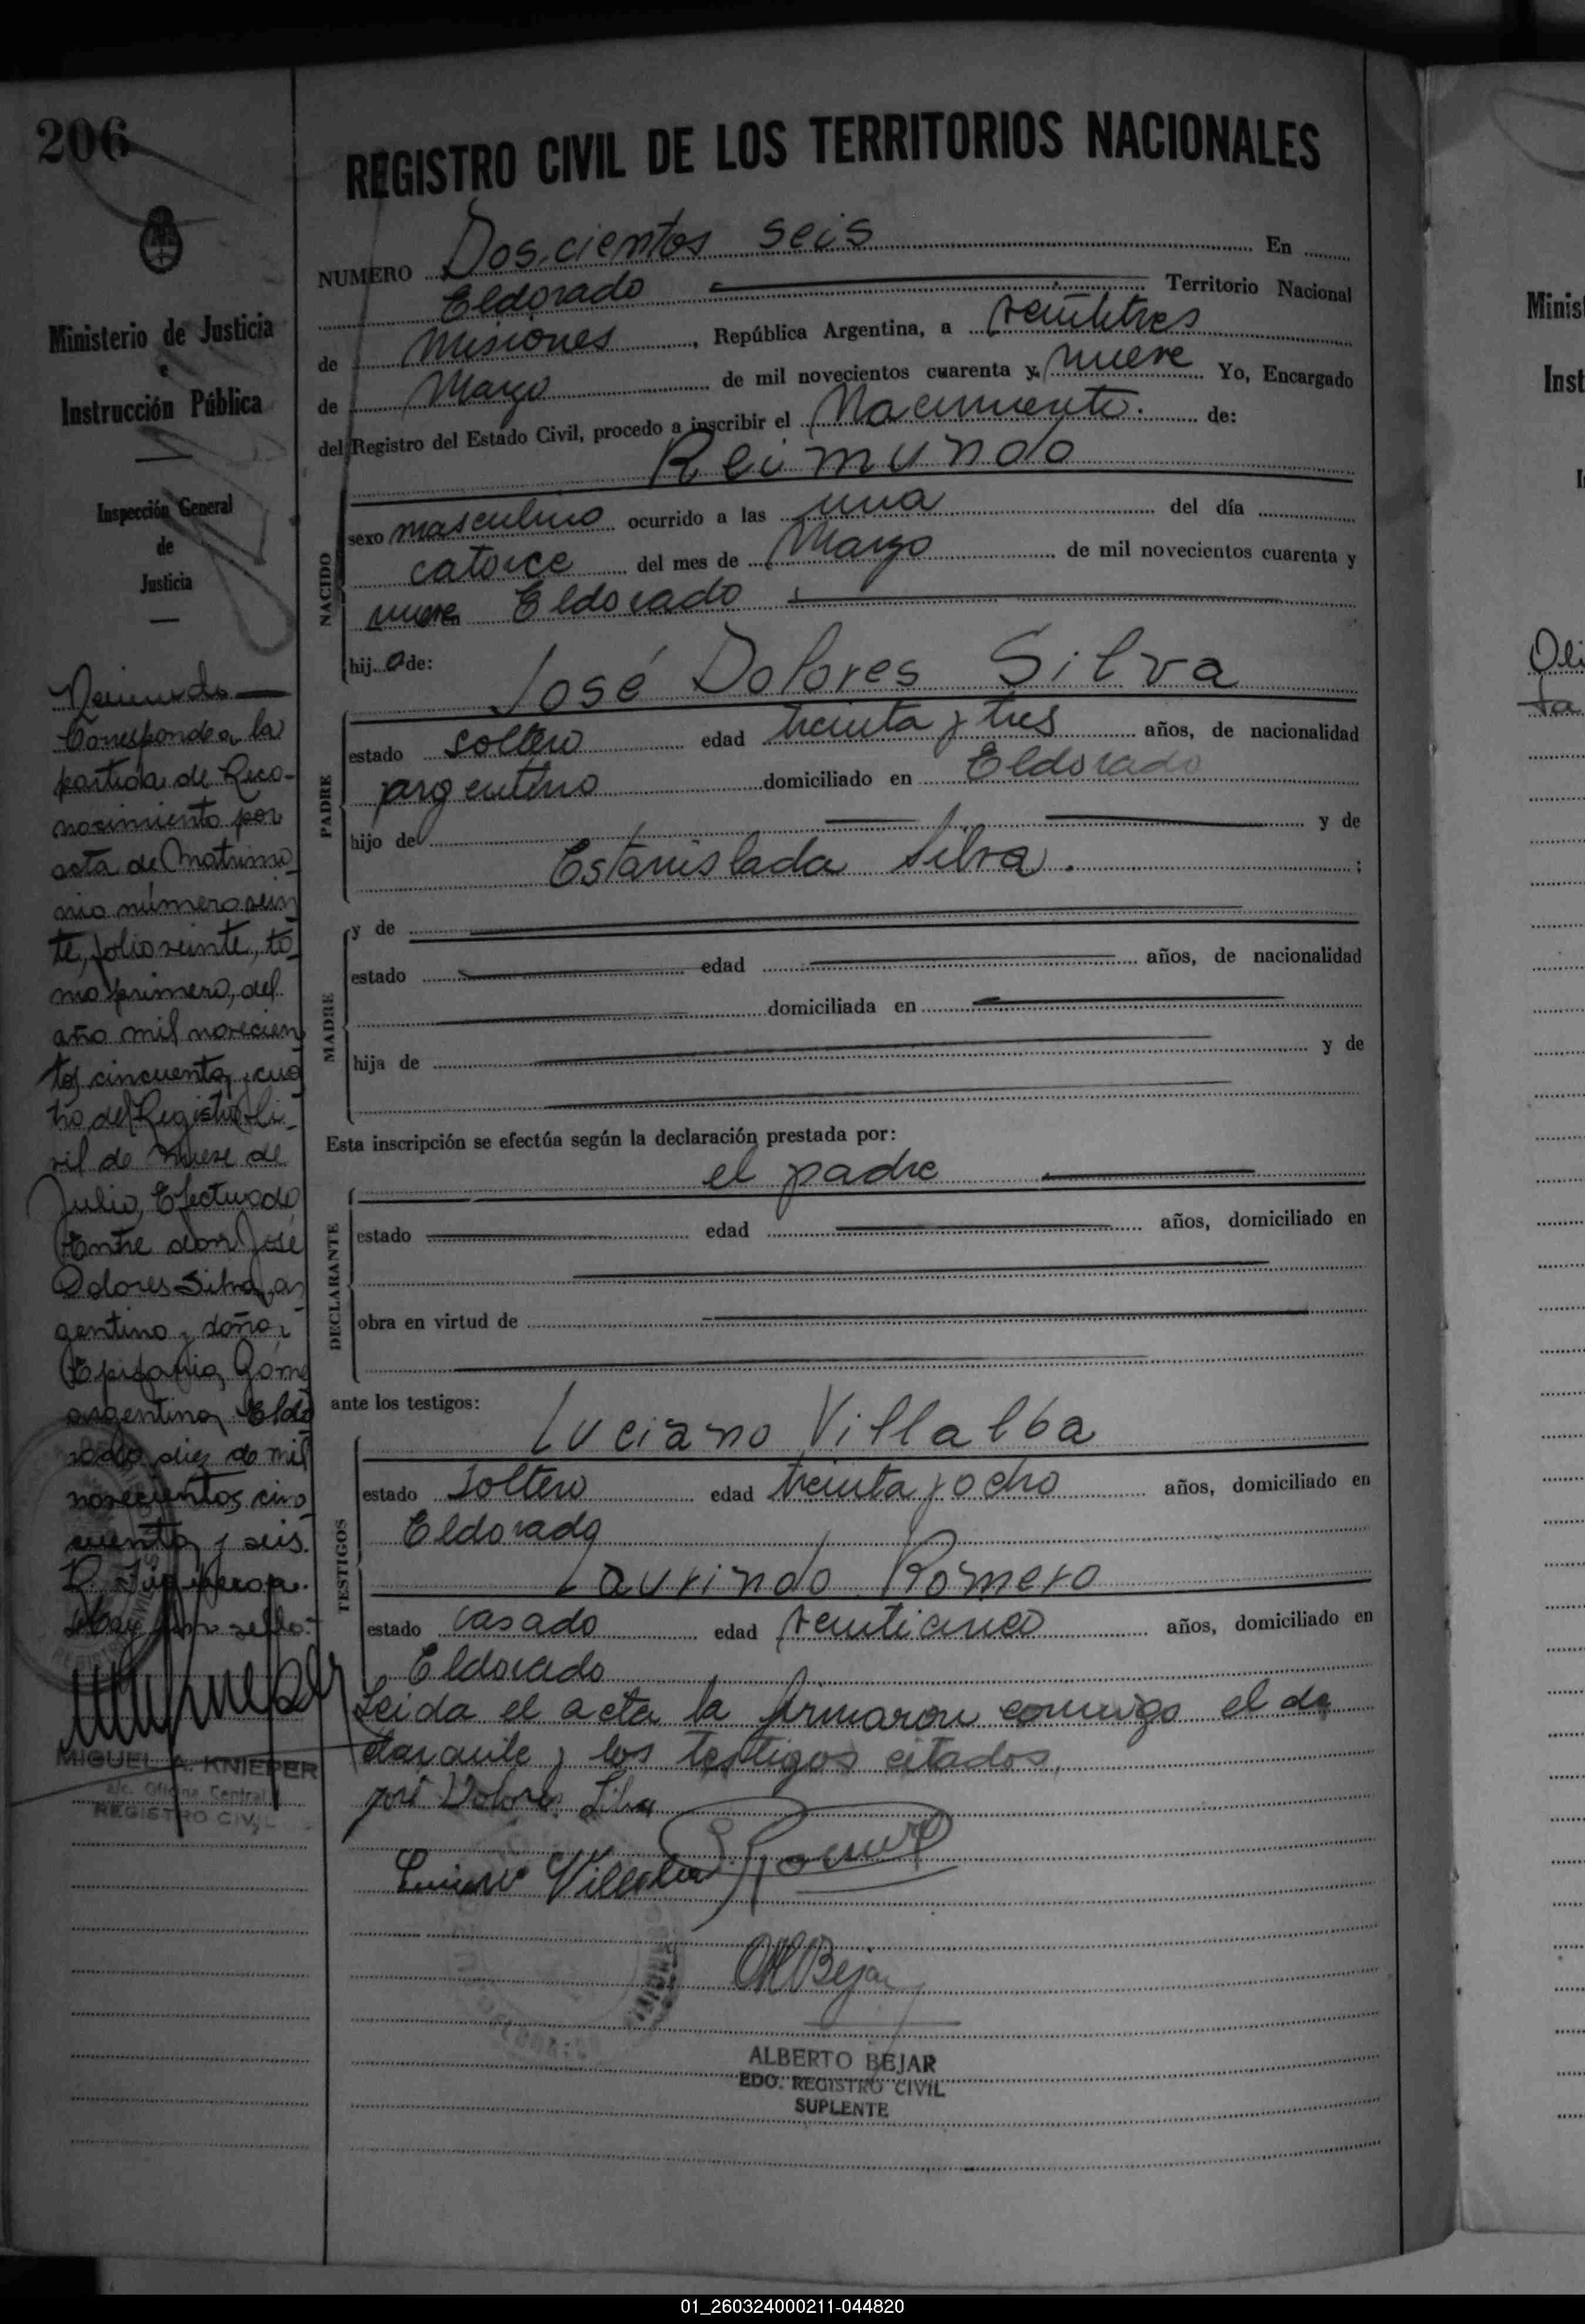 206
REGISTRO CIVIL DE LOS TERRITORIOS NACIONALES
NUMERO Doscientos seis En
Eldorado Territorio Nacional
de Misiones, República Argentina, a veintitres
de Marzo de mil novecientos cuarenta y nueve Yo, Encargado
del Registro del Estado Civil, procedo a inscribir el Nacimiento. de:
Reimundo
NACIDO
sexo masculino ocurrido a las una del día
catorce del mes de Marzo de mil novecientos cuarenta y
nueve en Eldorado
hijo de:
José Dolores Silva
PADRE
estado soltero edad treinta y tres años, de nacionalidad
argentino domiciliado en Eldorado
hijo de y de
Estanislada Silva.;
MADRE
y de
estado edad años, de nacionalidad
domiciliada en
hija de y de
Esta inscripción se efectúa según la declaración prestada por:
el padre
DECLARANTE
estado edad años, domiciliado en
obra en virtud de
ante los testigos:
TESTIGOS
Luciano Villalba
estado soltero edad treinta y ocho años, domiciliado en
Eldorado
Laurindo Romero
estado casado edad veinticinco años, domiciliado en
Eldorado
Leida el acta la firmaron conmigo el de
clarante y los testigos citados.
José Dolores Silva
Luciano Villalba
ABejar
ALBERTO BEJAR
EDO. REGISTRO CIVIL
SUPLENTE
Ministerio de Justicia
e
Instrucción Pública
Inspección General
de
Justicia
Reimundo
Corresponde a la
partida de Reco-
nocimiento por
acta de Matrimo
nio número vein
te, folio veinte, to
mo primero, del
año mil novecien
tos cincuenta y cua
tro del Registro Ci-
vil de Nueve de
Julio, Efectuado
Entre don José
Dolores Silva, ar
gentino y doña
Epifania Góme
argentina Eldo
rado, diez de mil
novecientos cin
cuenta y seis.
Hay un sello.
MIGUEL A. KNIEPER
a/c. Oficina Central
REGISTRO CIVIL
Minis
Inst
I
Oli
ta
01_260324000211-044820